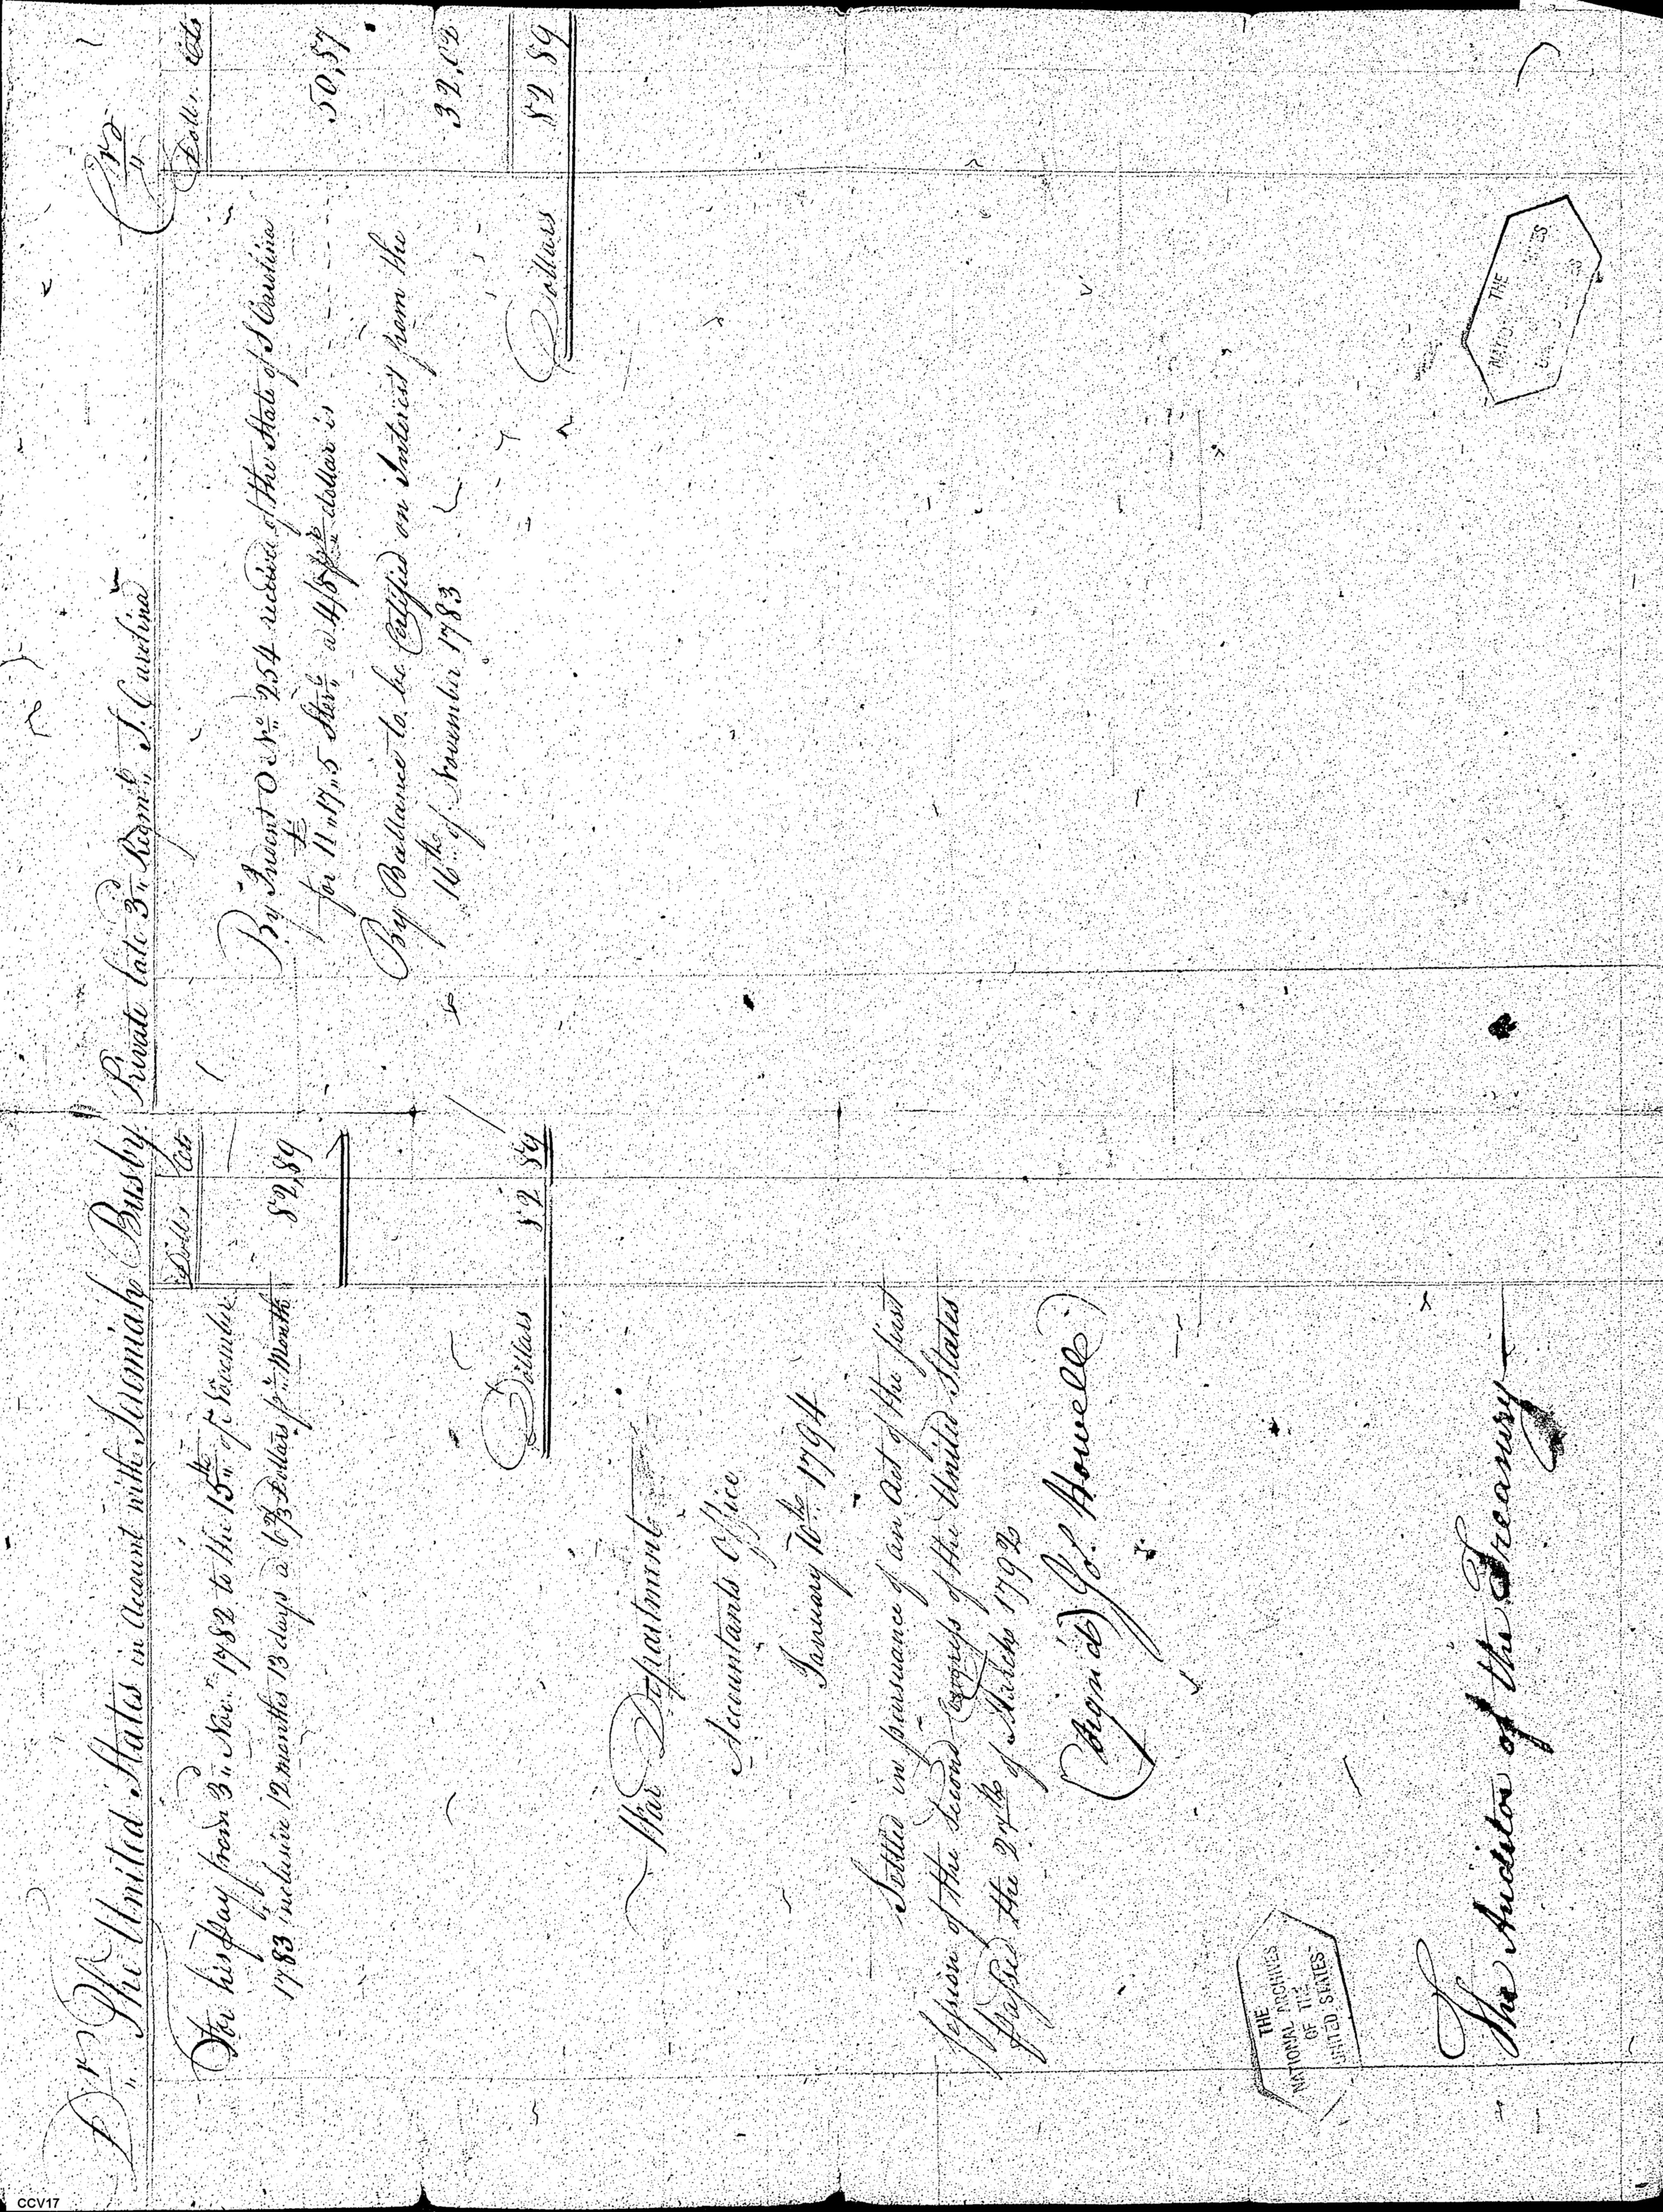 Dr The United States in Account with Jeremiah Busby Private late 3d Regmt S. Carolina Crs
Dolls Cts
For his pay from 3d Novr 1782 to the 15th of November
1783 inclusive 12 months 13 days a 6 2/3 Dollars pr Month 82,89
Dollars 82 89
War Department
Accountants Office
January 10th 1794
Settled in pursuance of an Act of the first
session of the second Congress of the United States
passed the 27th of March 1792
(signed) Jos. Howell
The Auditor of the Treasury
Dolls Cts
By Indent O No 254 received of the State of S Carolina
for £ 11"17"5 Sterg a 4/8 pr dollar is 50,87
By Ballance to be Certified on Interest from the
16th of November 1783 32,02
Dollars 82 89
THE
NATIONAL ARCHIVES
OF THE
UNITED STATES
THE
CCV17